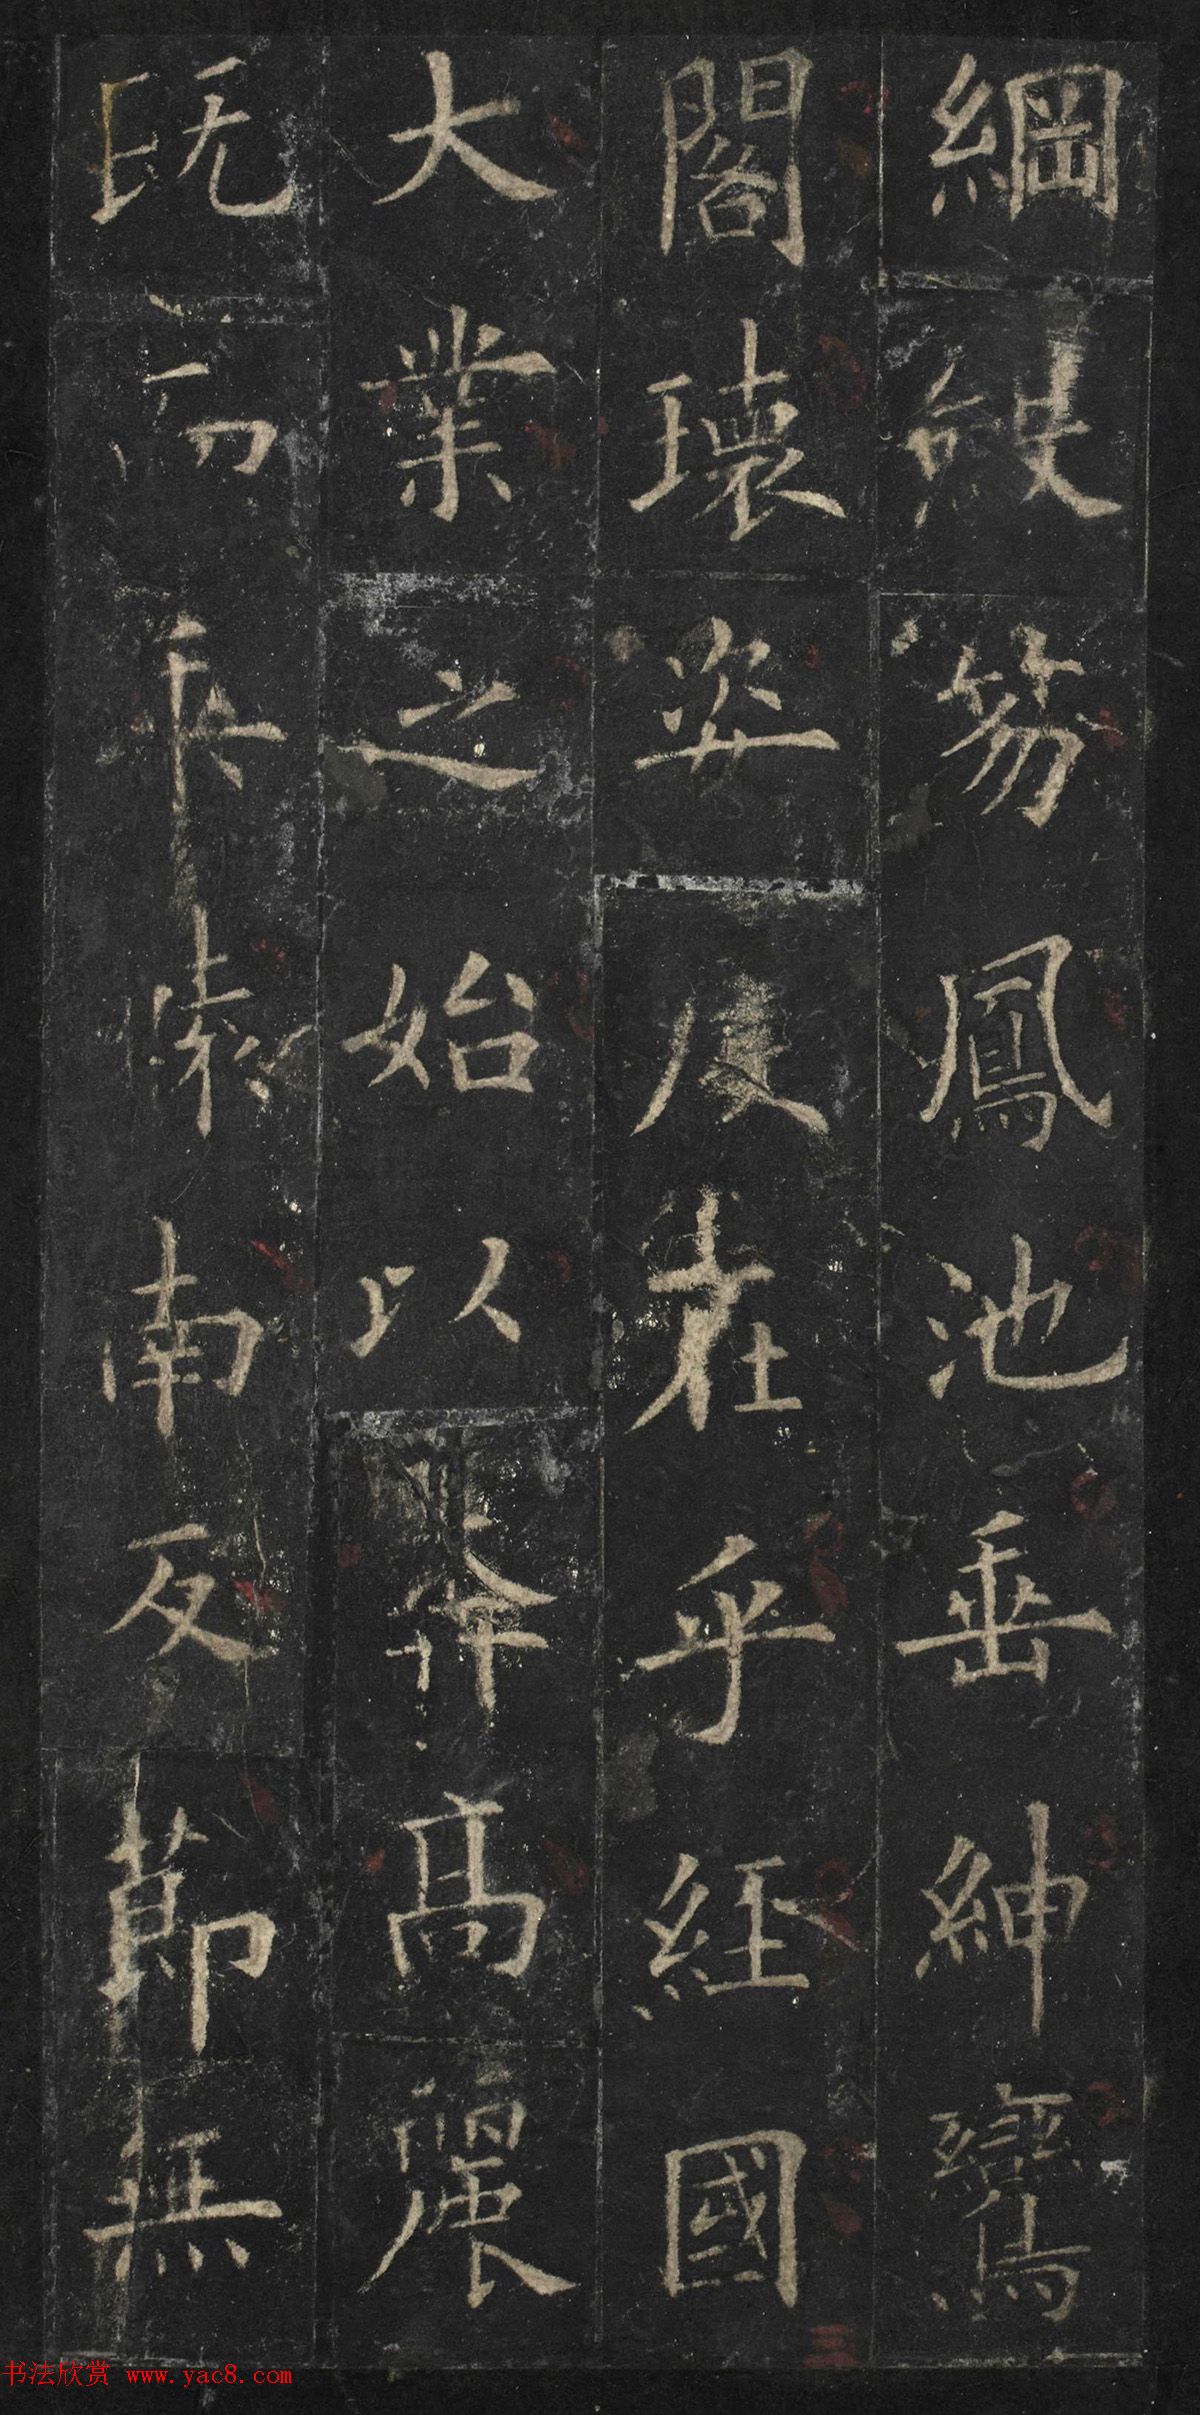 綱笏鳳池垂紳鸞
閣瓌姿度在乎經國
大業之始以高麗
既南反節無
书法欣赏 www.yac8.com